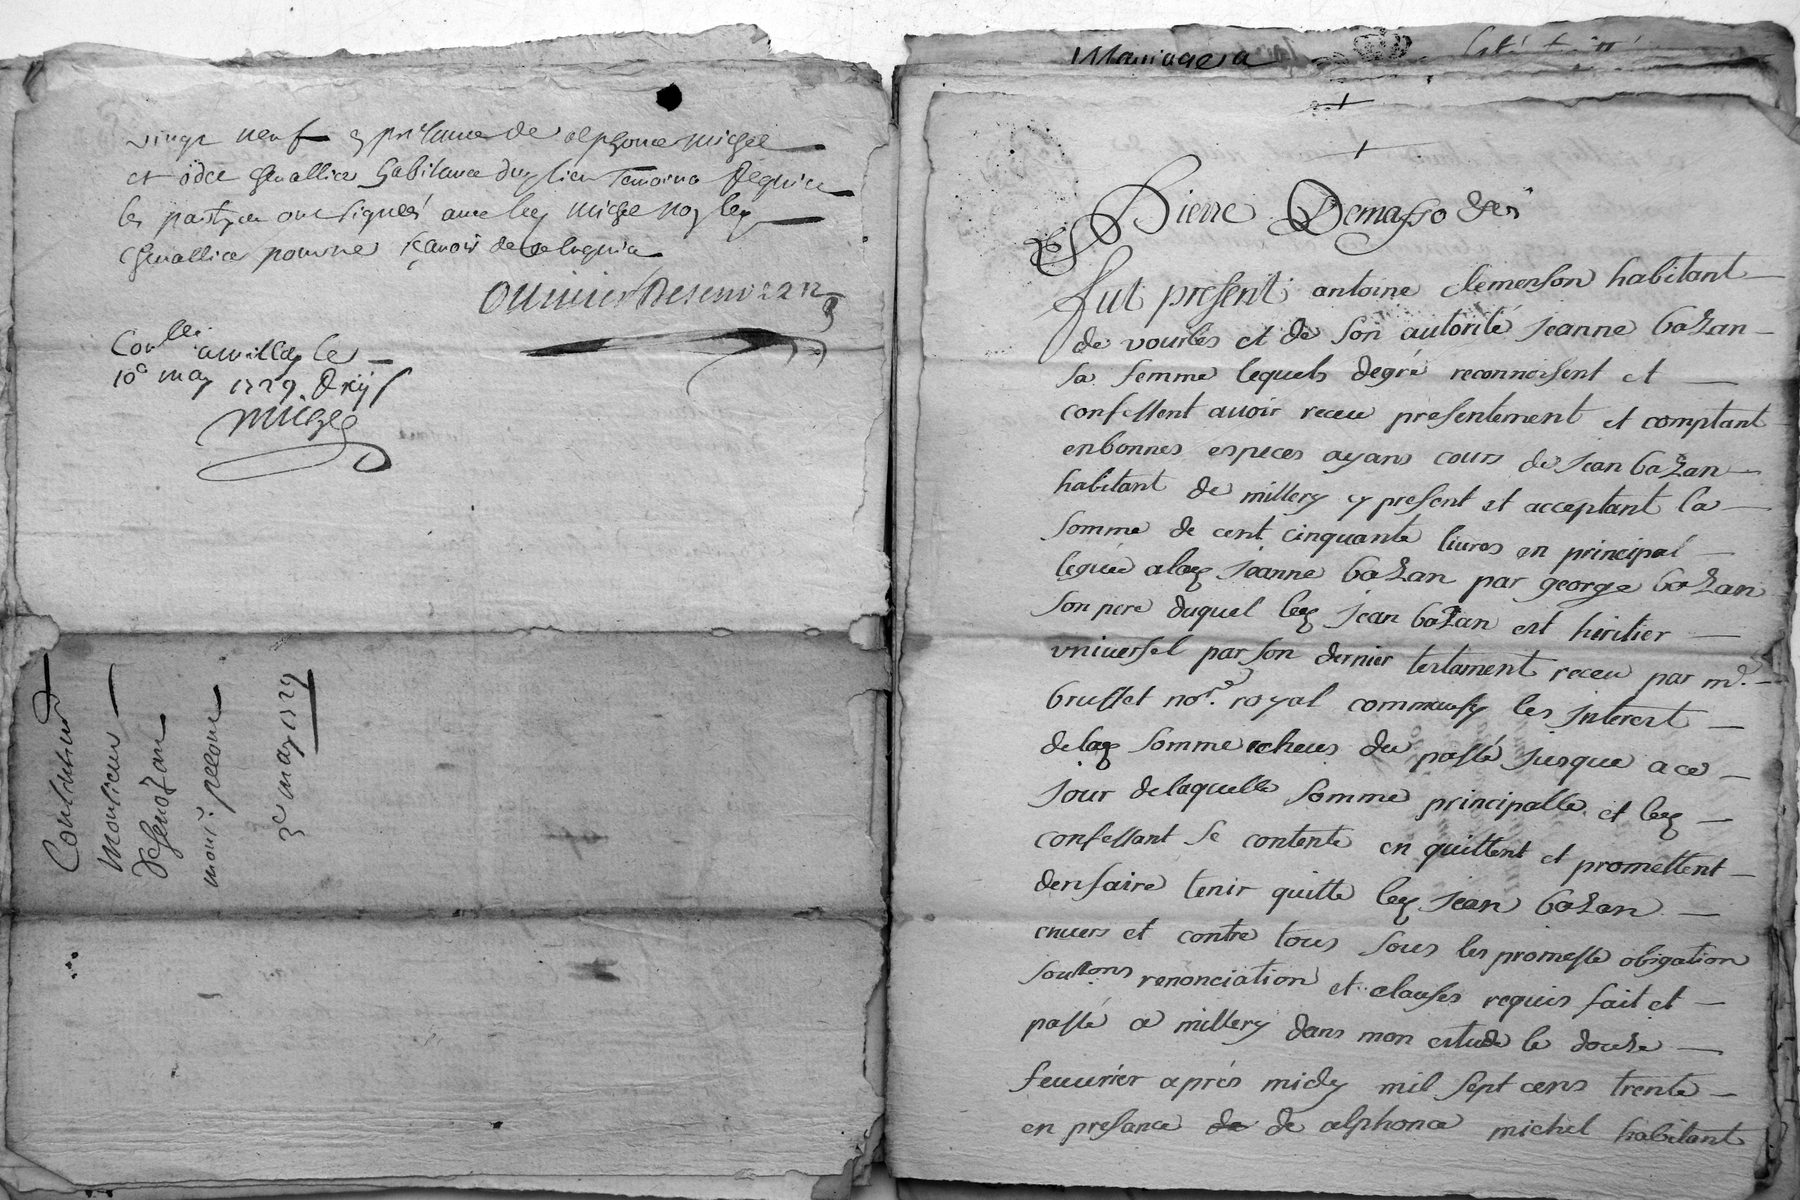 vingt neuf en presance de alphonce michel
et odet chevallier habitans dud lieu temoins requis
les partyes ont signées avec led michel non led
chevallier pour ne sçavoir de ce enquis
Conllé a millery le
10e may 1729 R xij s
michel
monsieur
de senozan
3e may 1729
Mariages a
Pierre Demasso
Fut present antoine clemenson habitant
de vourles et de son autorité jeanne bazan
sa femme lequels degré reconnoisent et
confessent avoir receu presentement et comptant
enbonnes especes ayans cours de jean bazan
habitant de millery y present et acceptant la
somme de cent cinquante livres en principal
leguée alad jeanne bazan par george bazan
son pere duquel led jean bazan est héritier
vniversel par son dernier testament receu par me.
brusset nore. royal comme aussy les jnterest
delad somme echeus du passé jusque a ce
jour delaquelle somme principalle et led
confessant se contente en quittent et promettent
den faire tenir quitte led jean bazan
envers et contre tous sous les promesse obigation
soutons renonciation et clauses requis fait et
passé a millery dans mon estude le douze
feuvrier aprés midy mil sept cens trente
en presance de de alphonce michel habitant